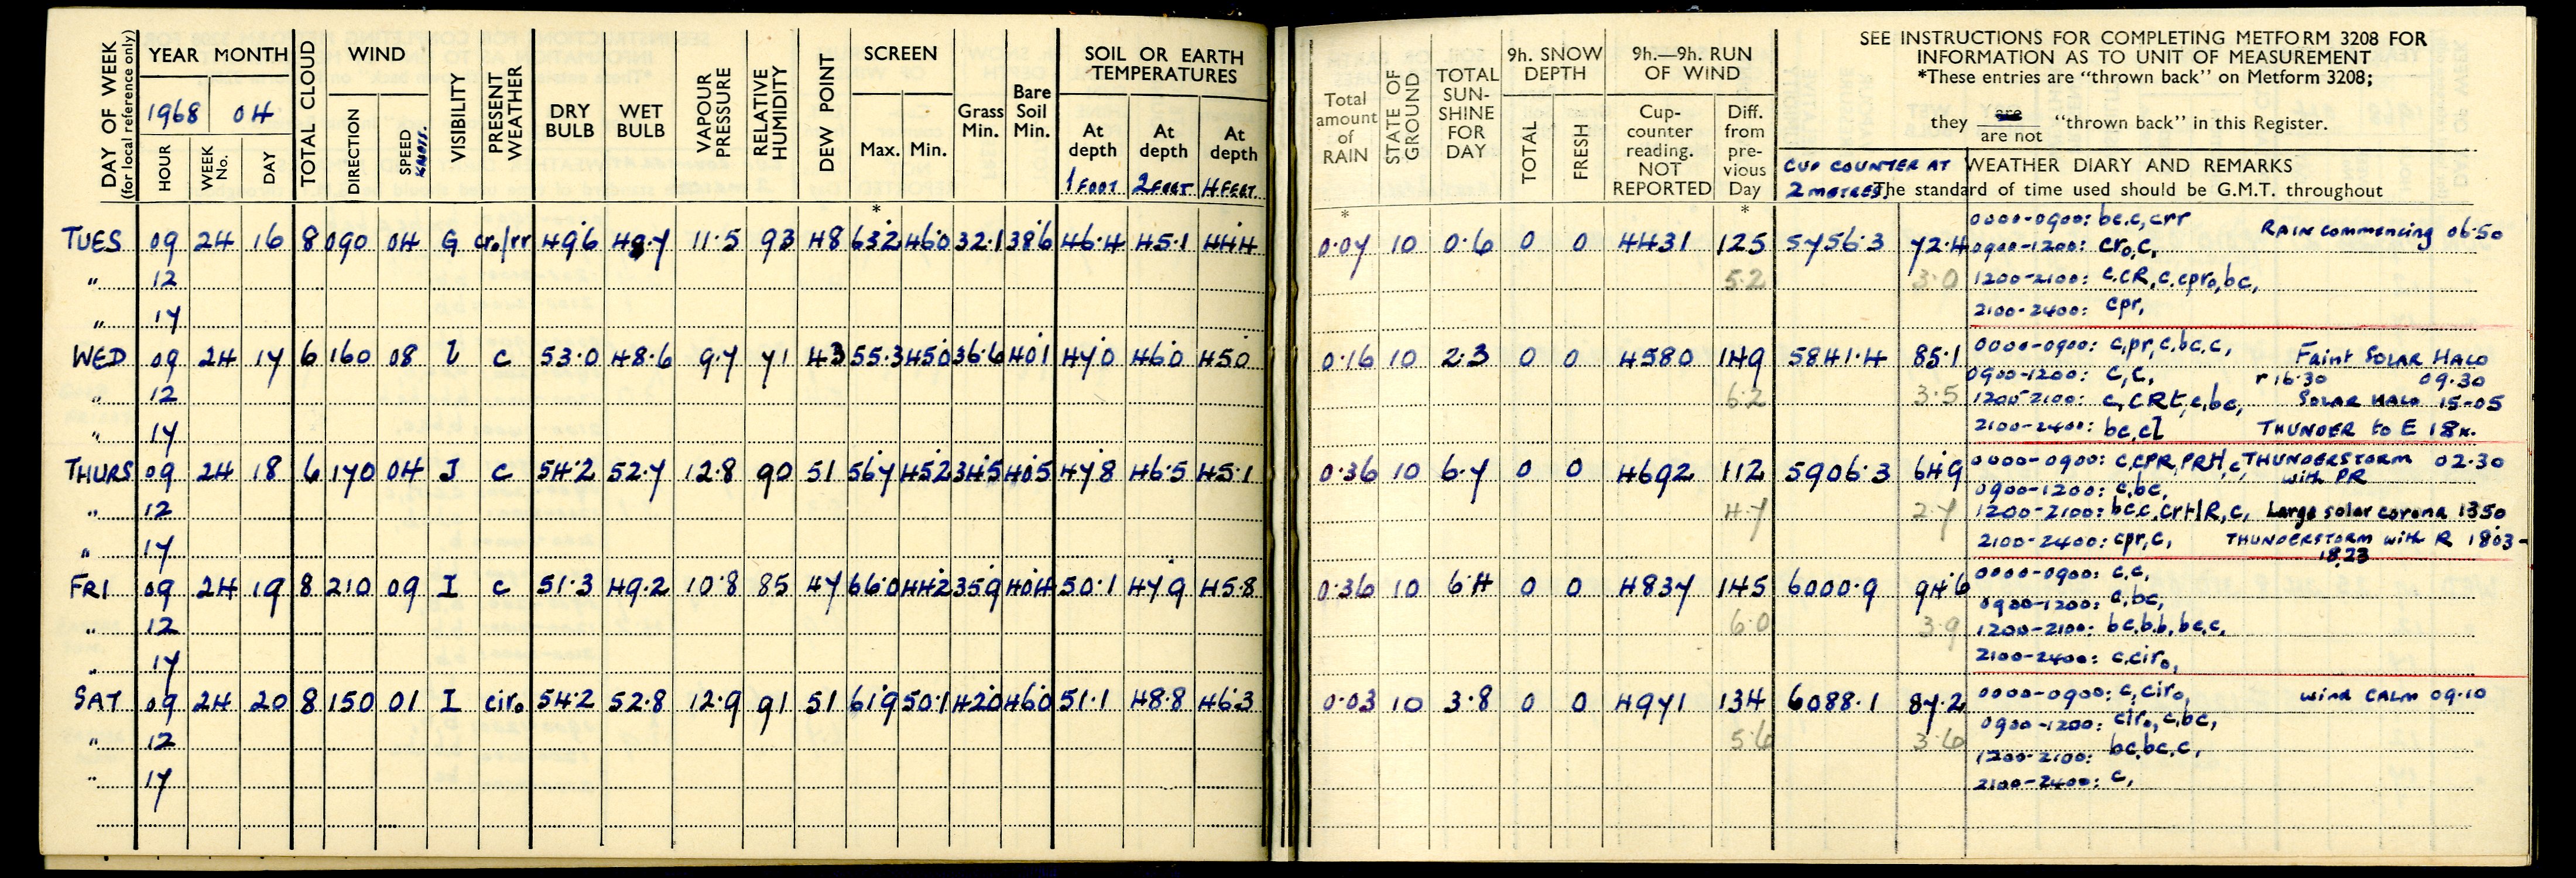 DAY OF WEEK (for local reference only) YEAR MONTH TOTAL CLOUD WIND VISIBILITY PRESENT WEATHER DRY BULB WET BULB VAPOUR PRESSURE RELATIVE HUMIDITY DEW POINT SCREEN Grass Min. Bare Soil Min. SOIL OR EARTH TEMPERATURES
1968 04
HOUR WEEK No. DAY DIRECTION SPEED KNOTS. Max. Min. At depth At depth At depth
1 FOOT 2 FEET 4 FEET.
*
TUES 09 24 16 8 090 04 G cr₀/rr 49.6 48.7 11.5 93 48 63.2 46.0 32.1 38.6 46.4 45.1 44.4
" 12
" 17
WED 09 24 17 6 160 08 I c 53.0 48.6 9.7 71 43 55.3 45.0 36.6 40.1 47.0 46.0 45.0
" 12
" 17
THURS 09 24 18 6 170 04 I c 54.2 52.7 12.8 90 51 56.7 45.2 34.5 40.5 47.8 46.5 45.1
" 12
" 17
FRI 09 24 19 8 210 09 I c 51.3 49.2 10.8 85 47 66.0 44.2 35.9 40.4 50.1 47.9 45.8
" 12
" 17
SAT 09 24 20 8 150 01 I cir₀ 54.2 52.8 12.9 91 51 61.9 50.1 42.0 46.0 51.1 48.8 46.3
" 12
" 17
Total amount of RAIN STATE OF GROUND TOTAL SUN-SHINE FOR DAY 9h. SNOW DEPTH 9h.—9h. RUN OF WIND
TOTAL FRESH Cup-counter reading. NOT REPORTED Diff. from pre-vious Day
SEE INSTRUCTIONS FOR COMPLETING METFORM 3208 FOR
INFORMATION AS TO UNIT OF MEASUREMENT
*These entries are "thrown back" on Metform 3208;
they are / are not "thrown back" in this Register.
CUP COUNTER AT 2 METRES.
WEATHER DIARY AND REMARKS
The standard of time used should be G.M.T. throughout
* *
0.07 10 0.6 0 0 4431 125 5756.3 72.4
5.2 3.0
0000-0900: bc.c, crr RAIN commencing 06.50
0900-1200: cr₀,c,
1200-2100: c.CR,c.cpr₀,bc,
2100-2400: cpr,
0.16 10 2.3 0 0 4580 149 5841.4 85.1
6.2 3.5
0000-0900: c,pr,c,bc,c, Faint SOLAR HALO 09.30
0900-1200: c,c, r 16.30
1200-2100: c,CRt,c,bc, SOLAR HALO 15-05
2100-2400: bc,cl THUNDER to E 18H.
0.36 10 6.7 0 0 4692 112 5906.3 64.9
4.7 2.7
0000-0900: c,cPR,PRH,c, THUNDERSTORM 02.30 with PR
0900-1200: c,bc,
1200-2100: bc,c,crH/R,c, Large solar corona 1350
2100-2400: cpr,c, THUNDERSTORM with R 1803-1823
0.36 10 6.4 0 0 4837 145 6000.9 94.6
6.0 3.9
0000-0900: c.c,
0900-1200: c,bc,
1200-2100: bc,b.b,bc,c,
2100-2400: c.cir₀,
0.03 10 3.8 0 0 4971 134 6088.1 87.2
5.6 3.6
0000-0900: c,cir₀, WIND CALM 09.10
0900-1200: cir₀,c,bc,
1200-2100: bc,bc,c,
2100-2400: c,